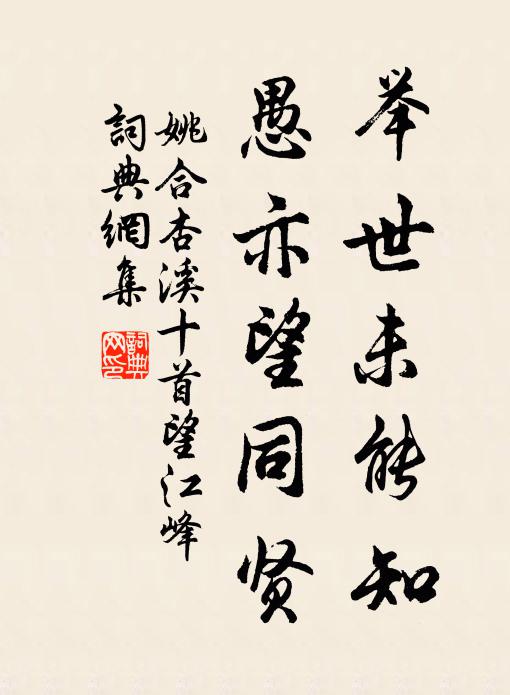 举世未能知
愚亦望同贤
姚合杏溪十首望江峰
詞典網集
詞典
网印